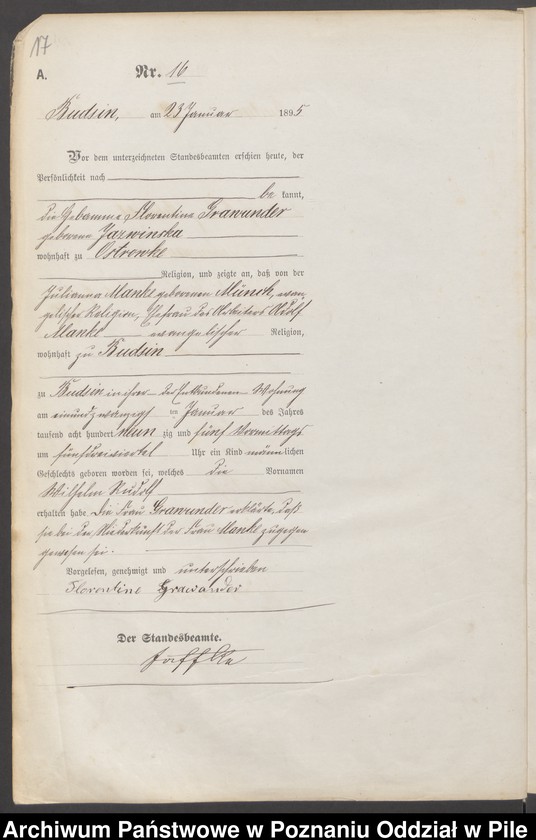 17
A. Nr. 16
Budsin, am 23 Januar 1895
Vor dem unterzeichneten Standesbeamten erschien heute, der
Persönlichkeit nach
be kannt,
die Hebamme Florentine Grawunder
geborene Jazwinska
wohnhaft zu Ostrowke
Religion, und zeigte an, daß von der
Julianna Manke geborenen Münch, evan,
gelischer Religion, Ehefrau des Arbeiters Adolf
Manke evangelischer Religion,
wohnhaft zu Budsin
zu Budsin in ihrer – der Wohnung
am einundzwanzigs ten Januar des Jahres
tausend acht hundert neun zig und fünf Vormittags
um fünfdreiviertel Uhr ein Kind männ lichen
Geschlechts geboren worden sei, welches die Vornamen
Wilhelm Rudolf
erhalten habe. Die Frau Grawunder erklärte, daß
sie bei der Niederkunft der Frau Manke zugegen
gewesen sei.
Vorgelesen, genehmigt und unterschrieben
Florentine Grawunder
Der Standesbeamte.
Archiwum Państwowe w Poznaniu Oddział w Pile